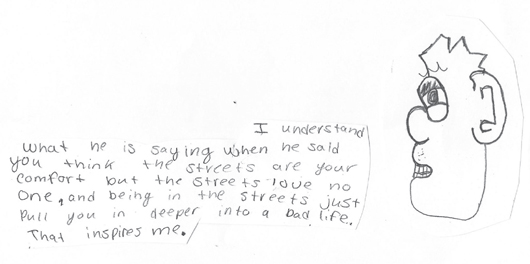 I understand
what he is saying when he said
you think the streets are your
comfort but the streets love no
one, and being in the streets just
pull you in deeper into a bad life.
That inspires me.